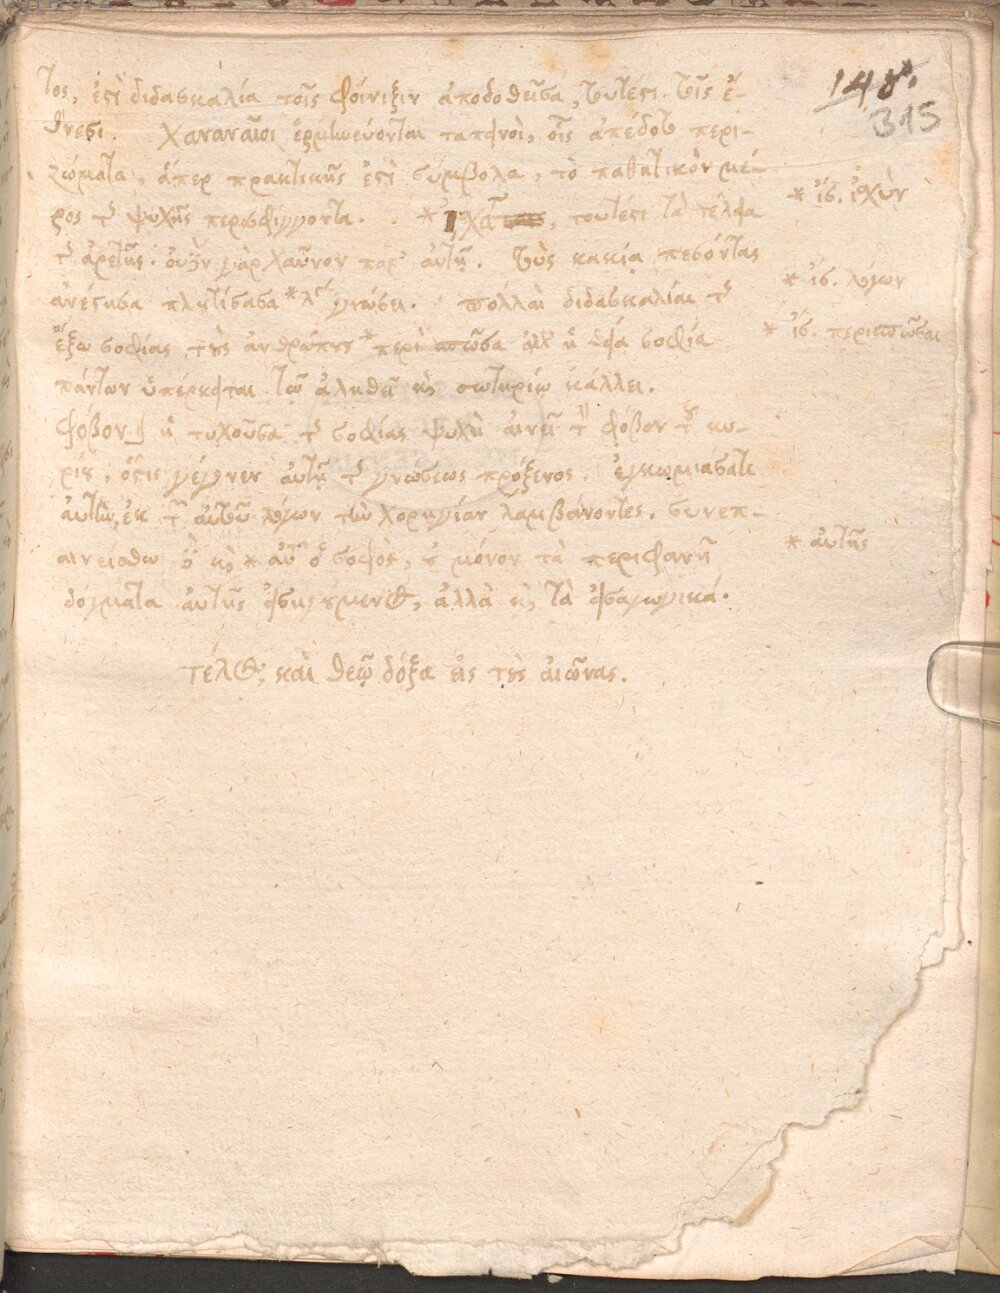 148.
315
τος, ἐστὶ διδασκαλία τοῖς Φοίνιξιν ἀποδοθεῖσα, τουτέστι τοῖς ἔ-
θνεσι. Χαναναῖοι ἑρμηνεύονται ταπεινοὶ, οἷς ἀπέδοτο περι-
ζώματα, ἅπερ πρακτικῆς ἐστὶ σύμβολα, τὸ παθητικὸν μέ-
ρος τῆς ψυχῆς περισφίγγοντα. * τουτέστι τὰ τέλεια
* ἴσ. ἰσχὺν
τῆς ἀρετῆς. οὐδὲν γὰρ χαῦνον παρ' αὐτῇ. τοὺς κακίᾳ πεσόντας
ἀνέστησα πλουτίσασα * γνώσει. πολλαὶ διδασκαλίαι τῆς
* ἴσ. λόγων
ἔξω σοφίας τοὺς ἀνθρώπους * περὶ ἀλλ' ἡ θεία σοφία
* ἴσ. περισπῶσαι
πάντων ὑπέρκειται τῷ ἀληθεῖ καὶ σωτηρίῳ κάλλει.
φόβον] ἡ τυχοῦσα τῆς σοφίας ψυχὴ αἰνεῖ τὸν φόβον τοῦ κυ-
ρίου, ὅστις γέγονεν αὐτῇ τῆς γνώσεως πρόξενος. ἐγκωμιάσατε
αὐτὴν, ἐκ τῶν αὐτοῦ λόγων τὴν χορηγίαν λαμβάνοντες. συνεπ-
αινείσθω δὲ καὶ * αὐτὸς ὁ σοφὸς, οὐ μόνον τὰ περιφανῆ
* αὐτῆς
δόγματα αὐτῆς ἐξηγούμενος, ἀλλὰ καὶ τὰ εἰσαγωγικά.
τέλος, καὶ θεῷ δόξα εἰς τοὺς αἰῶνας.